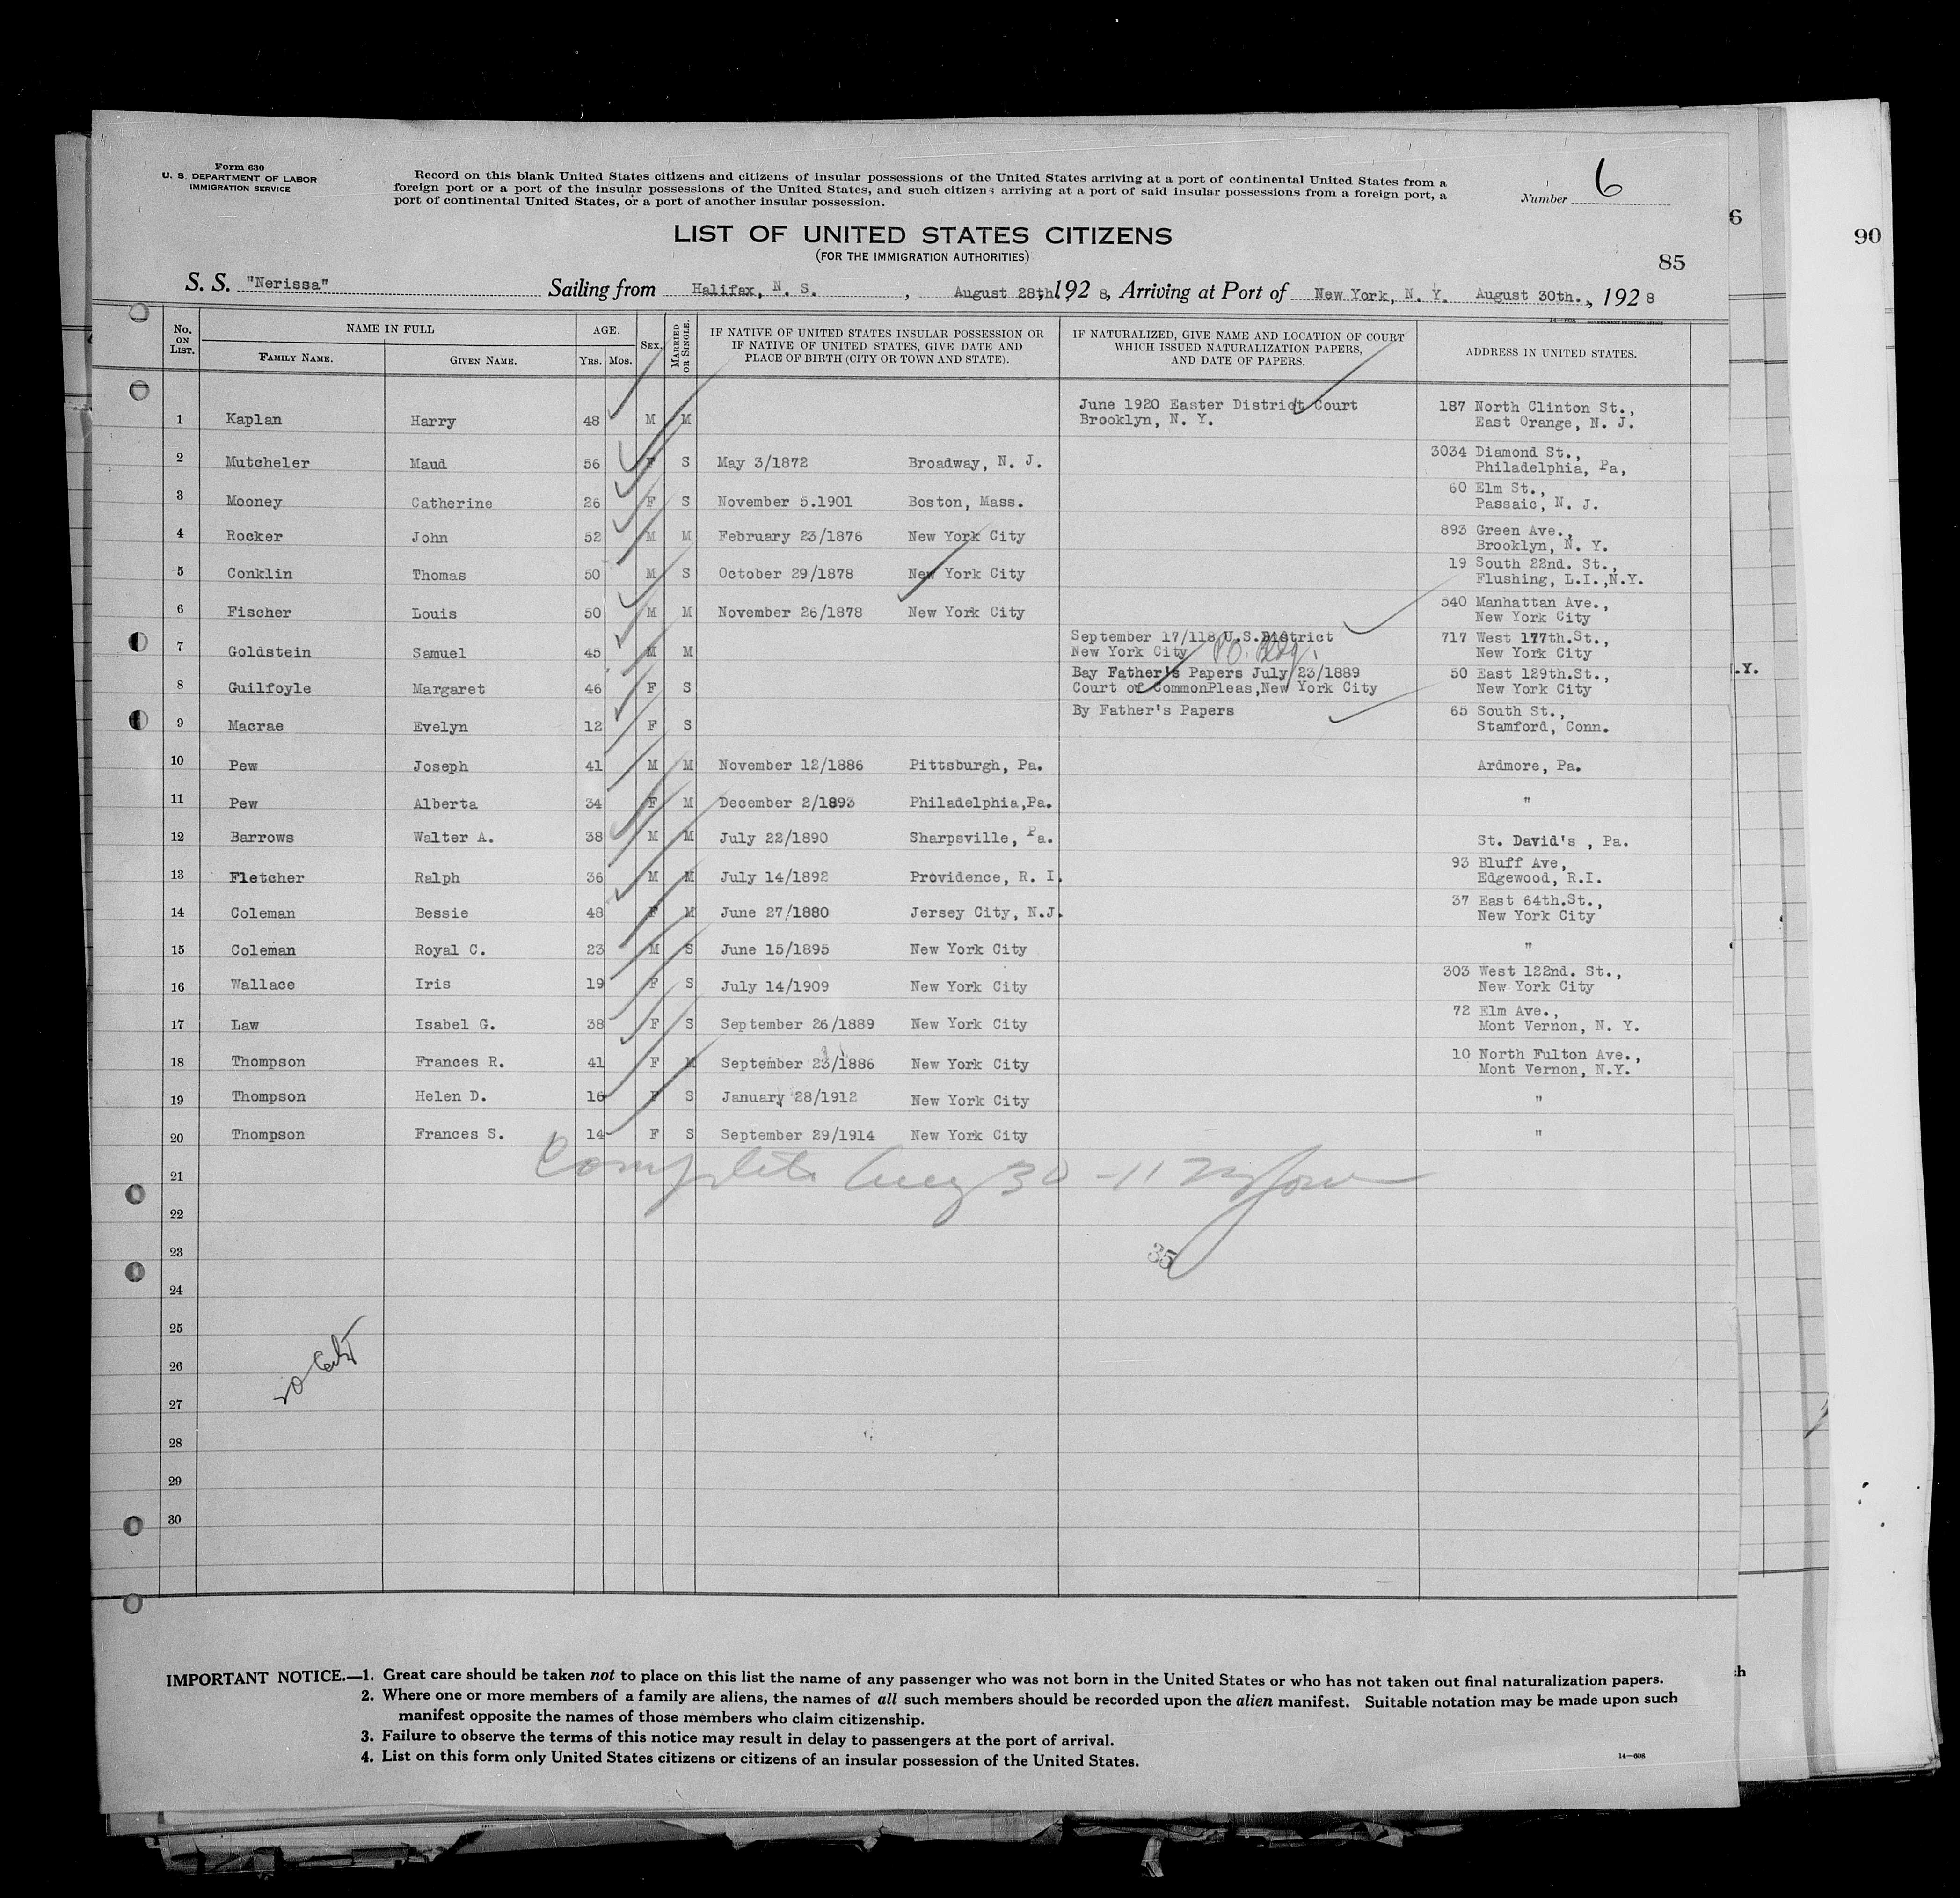 Form 630
U. S. DEPARTMENT OF LABOR
IMMIGRATION SERVICE
Record on this blank United States citizens and citizens of insular possessions of the United States arriving at a port of continental United States from a
foreign port or a port of the insular possessions of the United States, and such citizens arriving at a port of said insular possessions from a foreign port, a
port of continental United States, or a port of another insular possession.
Number 6
6
90
LIST OF UNITED STATES CITIZENS
(FOR THE IMMIGRATION AUTHORITIES)
85
S. S. "Nerissa" Sailing from Halifax, N. S. , August 28th 192 8, Arriving at Port of New York, N. Y. August 30th. , 192 8
No. ON LIST. NAME IN FULL FAMILY NAME. GIVEN NAME. AGE. YRS. MOS. SEX. MARRIED OR SINGLE.
IF NATIVE OF UNITED STATES INSULAR POSSESSION OR
IF NATIVE OF UNITED STATES, GIVE DATE AND
PLACE OF BIRTH (CITY OR TOWN AND STATE).
IF NATURALIZED, GIVE NAME AND LOCATION OF COURT
WHICH ISSUED NATURALIZATION PAPERS,
AND DATE OF PAPERS.
ADDRESS IN UNITED STATES.
June 1920 Easter District Court 187 North Clinton St.,
1 Kaplan Harry 48 M M Brooklyn, N. Y. East Orange, N. J.
3034 Diamond St.,
2 Mutcheler Maud 56 F S May 3/1872 Broadway, N. J. Philadelphia, Pa,
60 Elm St.,
3 Mooney Catherine 26 F S November 5.1901 Boston, Mass. Passaic, N. J.
893 Green Ave.,
4 Rocker John 52 M M February 23/1876 New York City Brooklyn, N. Y.
19 South 22nd. St.,
5 Conklin Thomas 50 M S October 29/1878 New York City Flushing, L.I.,N.Y.
540 Manhattan Ave.,
6 Fischer Louis 50 M M November 26/1878 New York City New York City
September 17/118 U.S.District 717 West 177th.St.,
7 Goldstein Samuel 45 M M New York City P.O. Bldg. New York City
Bay Father's Papers July/23/1889 50 East 129th.St.,
8 Guilfoyle Margaret 46 F S Court of CommonPleas,New York City New York City
By Father's Papers 65 South St.,
9 Macrae Evelyn 12 F S Stamford, Conn.
10 Pew Joseph 41 M M November 12/1886 Pittsburgh, Pa. Ardmore, Pa.
11 Pew Alberta 34 F M December 2/1893 Philadelphia,Pa. "
12 Barrows Walter A. 38 M M July 22/1890 Sharpsville, Pa. St. David's , Pa.
93 Bluff Ave,
13 Fletcher Ralph 36 M M July 14/1892 Providence, R. I. Edgewood, R.I.
37 East 64th.St.,
14 Coleman Bessie 48 F M June 27/1880 Jersey City, N.J. New York City
15 Coleman Royal C. 23 M S June 15/1895 New York City "
303 West 122nd. St.,
16 Wallace Iris 19 F S July 14/1909 New York City New York City
72 Elm Ave.,
17 Law Isabel G. 38 F S September 26/1889 New York City Mont Vernon, N. Y.
10 North Fulton Ave.,
18 Thompson Frances R. 41 F M September 23/1886 New York City Mont Vernon, N.Y.
19 Thompson Helen D. 16 F S January 28/1912 New York City "
20 Thompson Frances S. 14 F S September 29/1914 New York City "
Complete Aug 30 -11
21
22
23
35
24
25
26
27
28
29
30
.Y.
IMPORTANT NOTICE.—1. Great care should be taken not to place on this list the name of any passenger who was not born in the United States or who has not taken out final naturalization papers.
2. Where one or more members of a family are aliens, the names of all such members should be recorded upon the alien manifest. Suitable notation may be made upon such
manifest opposite the names of those members who claim citizenship.
3. Failure to observe the terms of this notice may result in delay to passengers at the port of arrival.
4. List on this form only United States citizens or citizens of an insular possession of the United States.
14—608